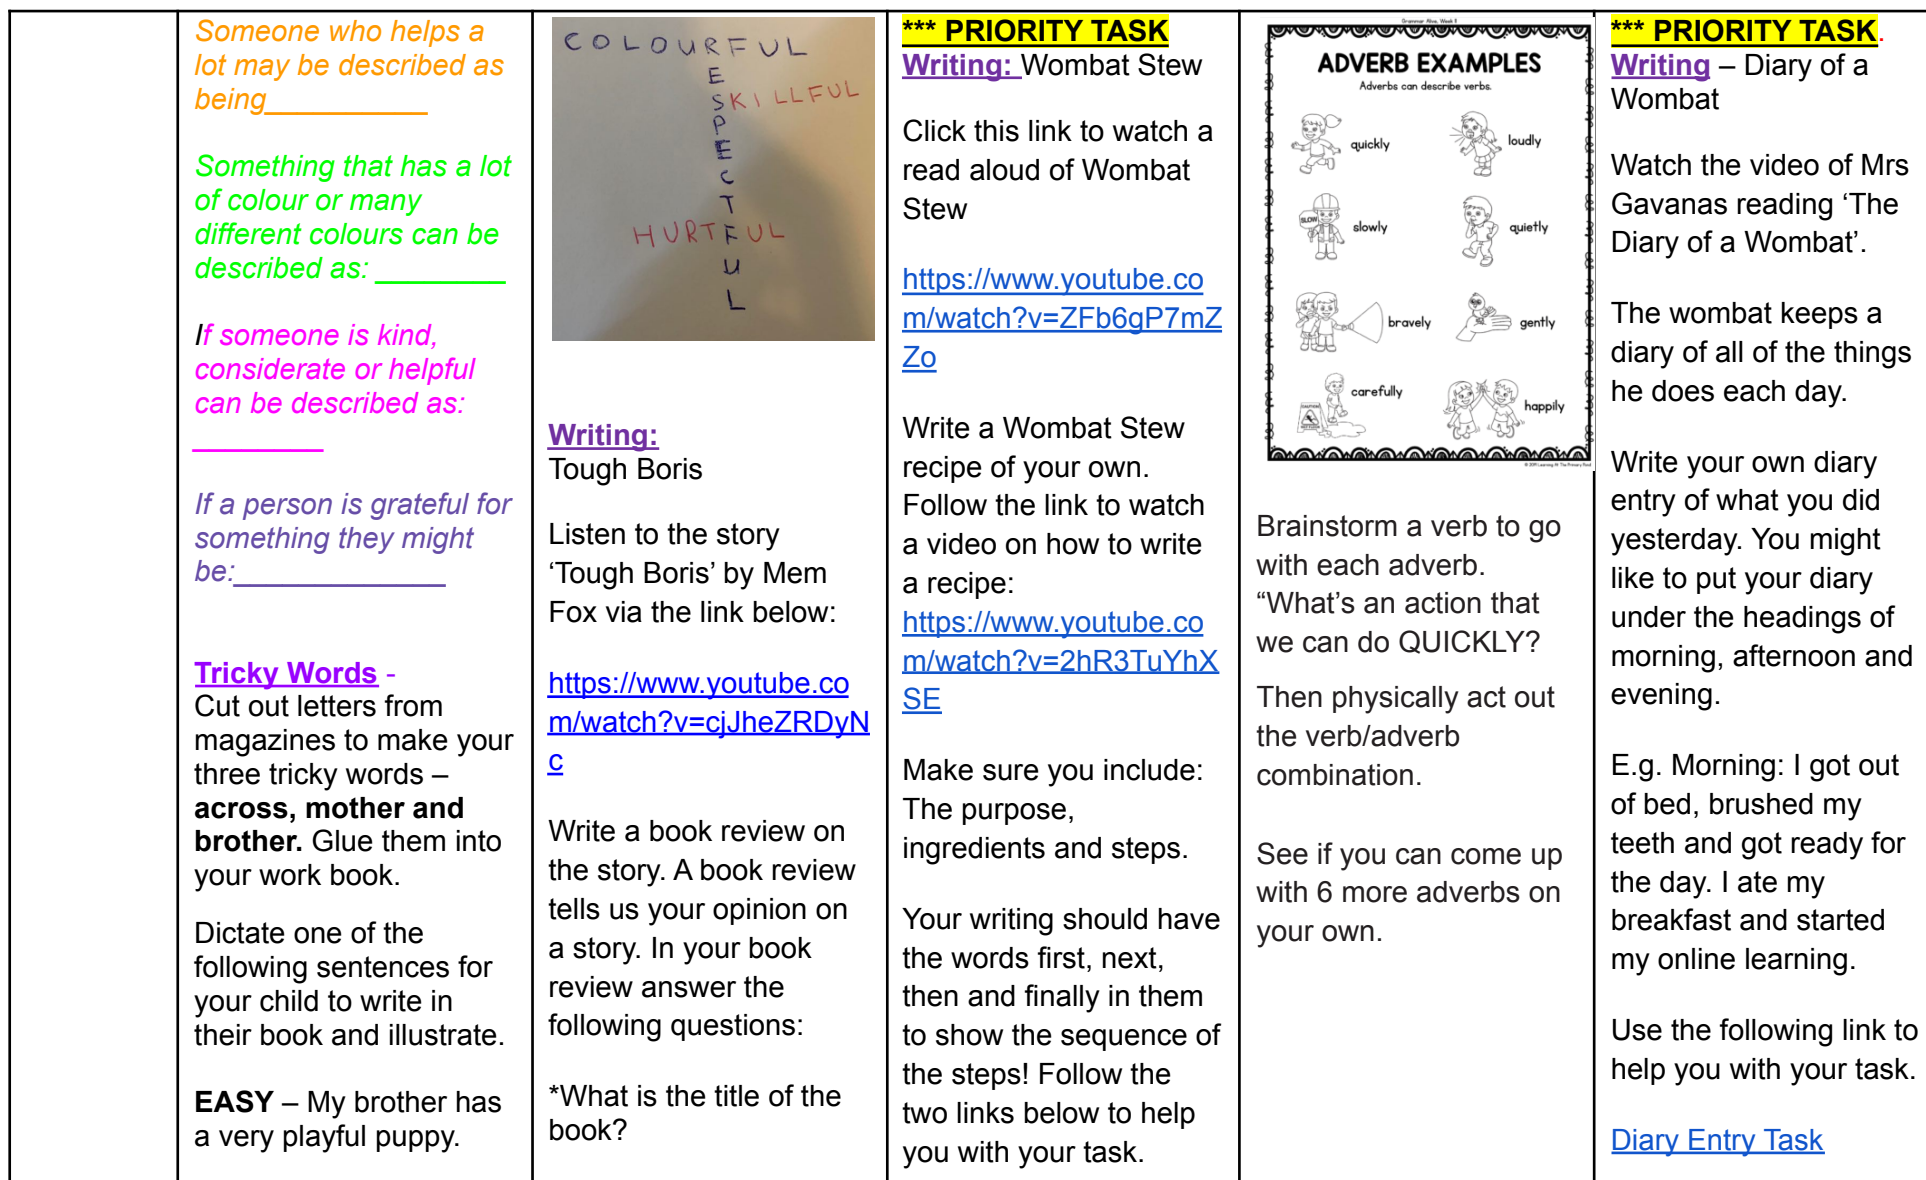 Someone who helps a
lot may be described as
being__________
Something that has a lot
of colour or many
different colours can be
described as: ________
If someone is kind,
considerate or helpful
can be described as:
________
If a person is grateful for
something they might
be:_____________
Tricky Words -
Cut out letters from
magazines to make your
three tricky words –
across, mother and
brother. Glue them into
your work book.
Dictate one of the
following sentences for
your child to write in
their book and illustrate.
EASY – My brother has
a very playful puppy.
COLOURFUL
RESPECTFUL
SKILLFUL
HURTFUL
Writing:
Tough Boris
Listen to the story
‘Tough Boris’ by Mem
Fox via the link below:
https://www.youtube.co
m/watch?v=cjJheZRDyN
c
Write a book review on
the story. A book review
tells us your opinion on
a story. In your book
review answer the
following questions:
*What is the title of the
book?
*** PRIORITY TASK
Writing: Wombat Stew
Click this link to watch a
read aloud of Wombat
Stew
https://www.youtube.co
m/watch?v=ZFb6gP7mZ
Zo
Write a Wombat Stew
recipe of your own.
Follow the link to watch
a video on how to write
a recipe:
https://www.youtube.co
m/watch?v=2hR3TuYhX
SE
Make sure you include:
The purpose,
ingredients and steps.
Your writing should have
the words first, next,
then and finally in them
to show the sequence of
the steps! Follow the
two links below to help
you with your task.
Grammar Alive, Week 11
ADVERB EXAMPLES
Adverbs can describe verbs.
quickly
loudly
SLOW
slowly
quietly
bravely
gently
carefully
happily
Brainstorm a verb to go
with each adverb.
“What’s an action that
we can do QUICKLY?
Then physically act out
the verb/adverb
combination.
See if you can come up
with 6 more adverbs on
your own.
*** PRIORITY TASK.
Writing – Diary of a
Wombat
Watch the video of Mrs
Gavanas reading ‘The
Diary of a Wombat’.
The wombat keeps a
diary of all of the things
he does each day.
Write your own diary
entry of what you did
yesterday. You might
like to put your diary
under the headings of
morning, afternoon and
evening.
E.g. Morning: I got out
of bed, brushed my
teeth and got ready for
the day. I ate my
breakfast and started
my online learning.
Use the following link to
help you with your task.
Diary Entry Task